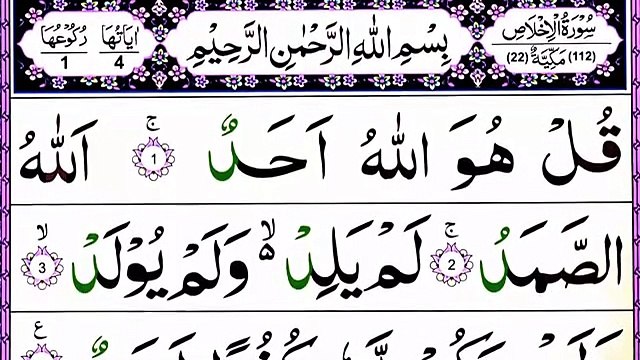 سُوْرَةُ الْاِخْلَاصِ
(112) مَكِّيَّةٌ (22)
بِسْمِ اللّٰهِ الرَّحْمٰنِ الرَّحِيْمِ
اٰيَاتُهَا 4
رُكُوْعُهَا 1
قُلْ هُوَ اللّٰهُ اَحَدٌ ۚ 1 اَللّٰهُ
الصَّمَدُ ۚ 2 لَمْ يَلِدْ ۙ۵ وَلَمْ يُوْلَدْ ۙ 3